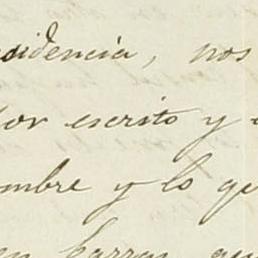 sidencia, nos
or escrito y
mbre y lo que
en barras que